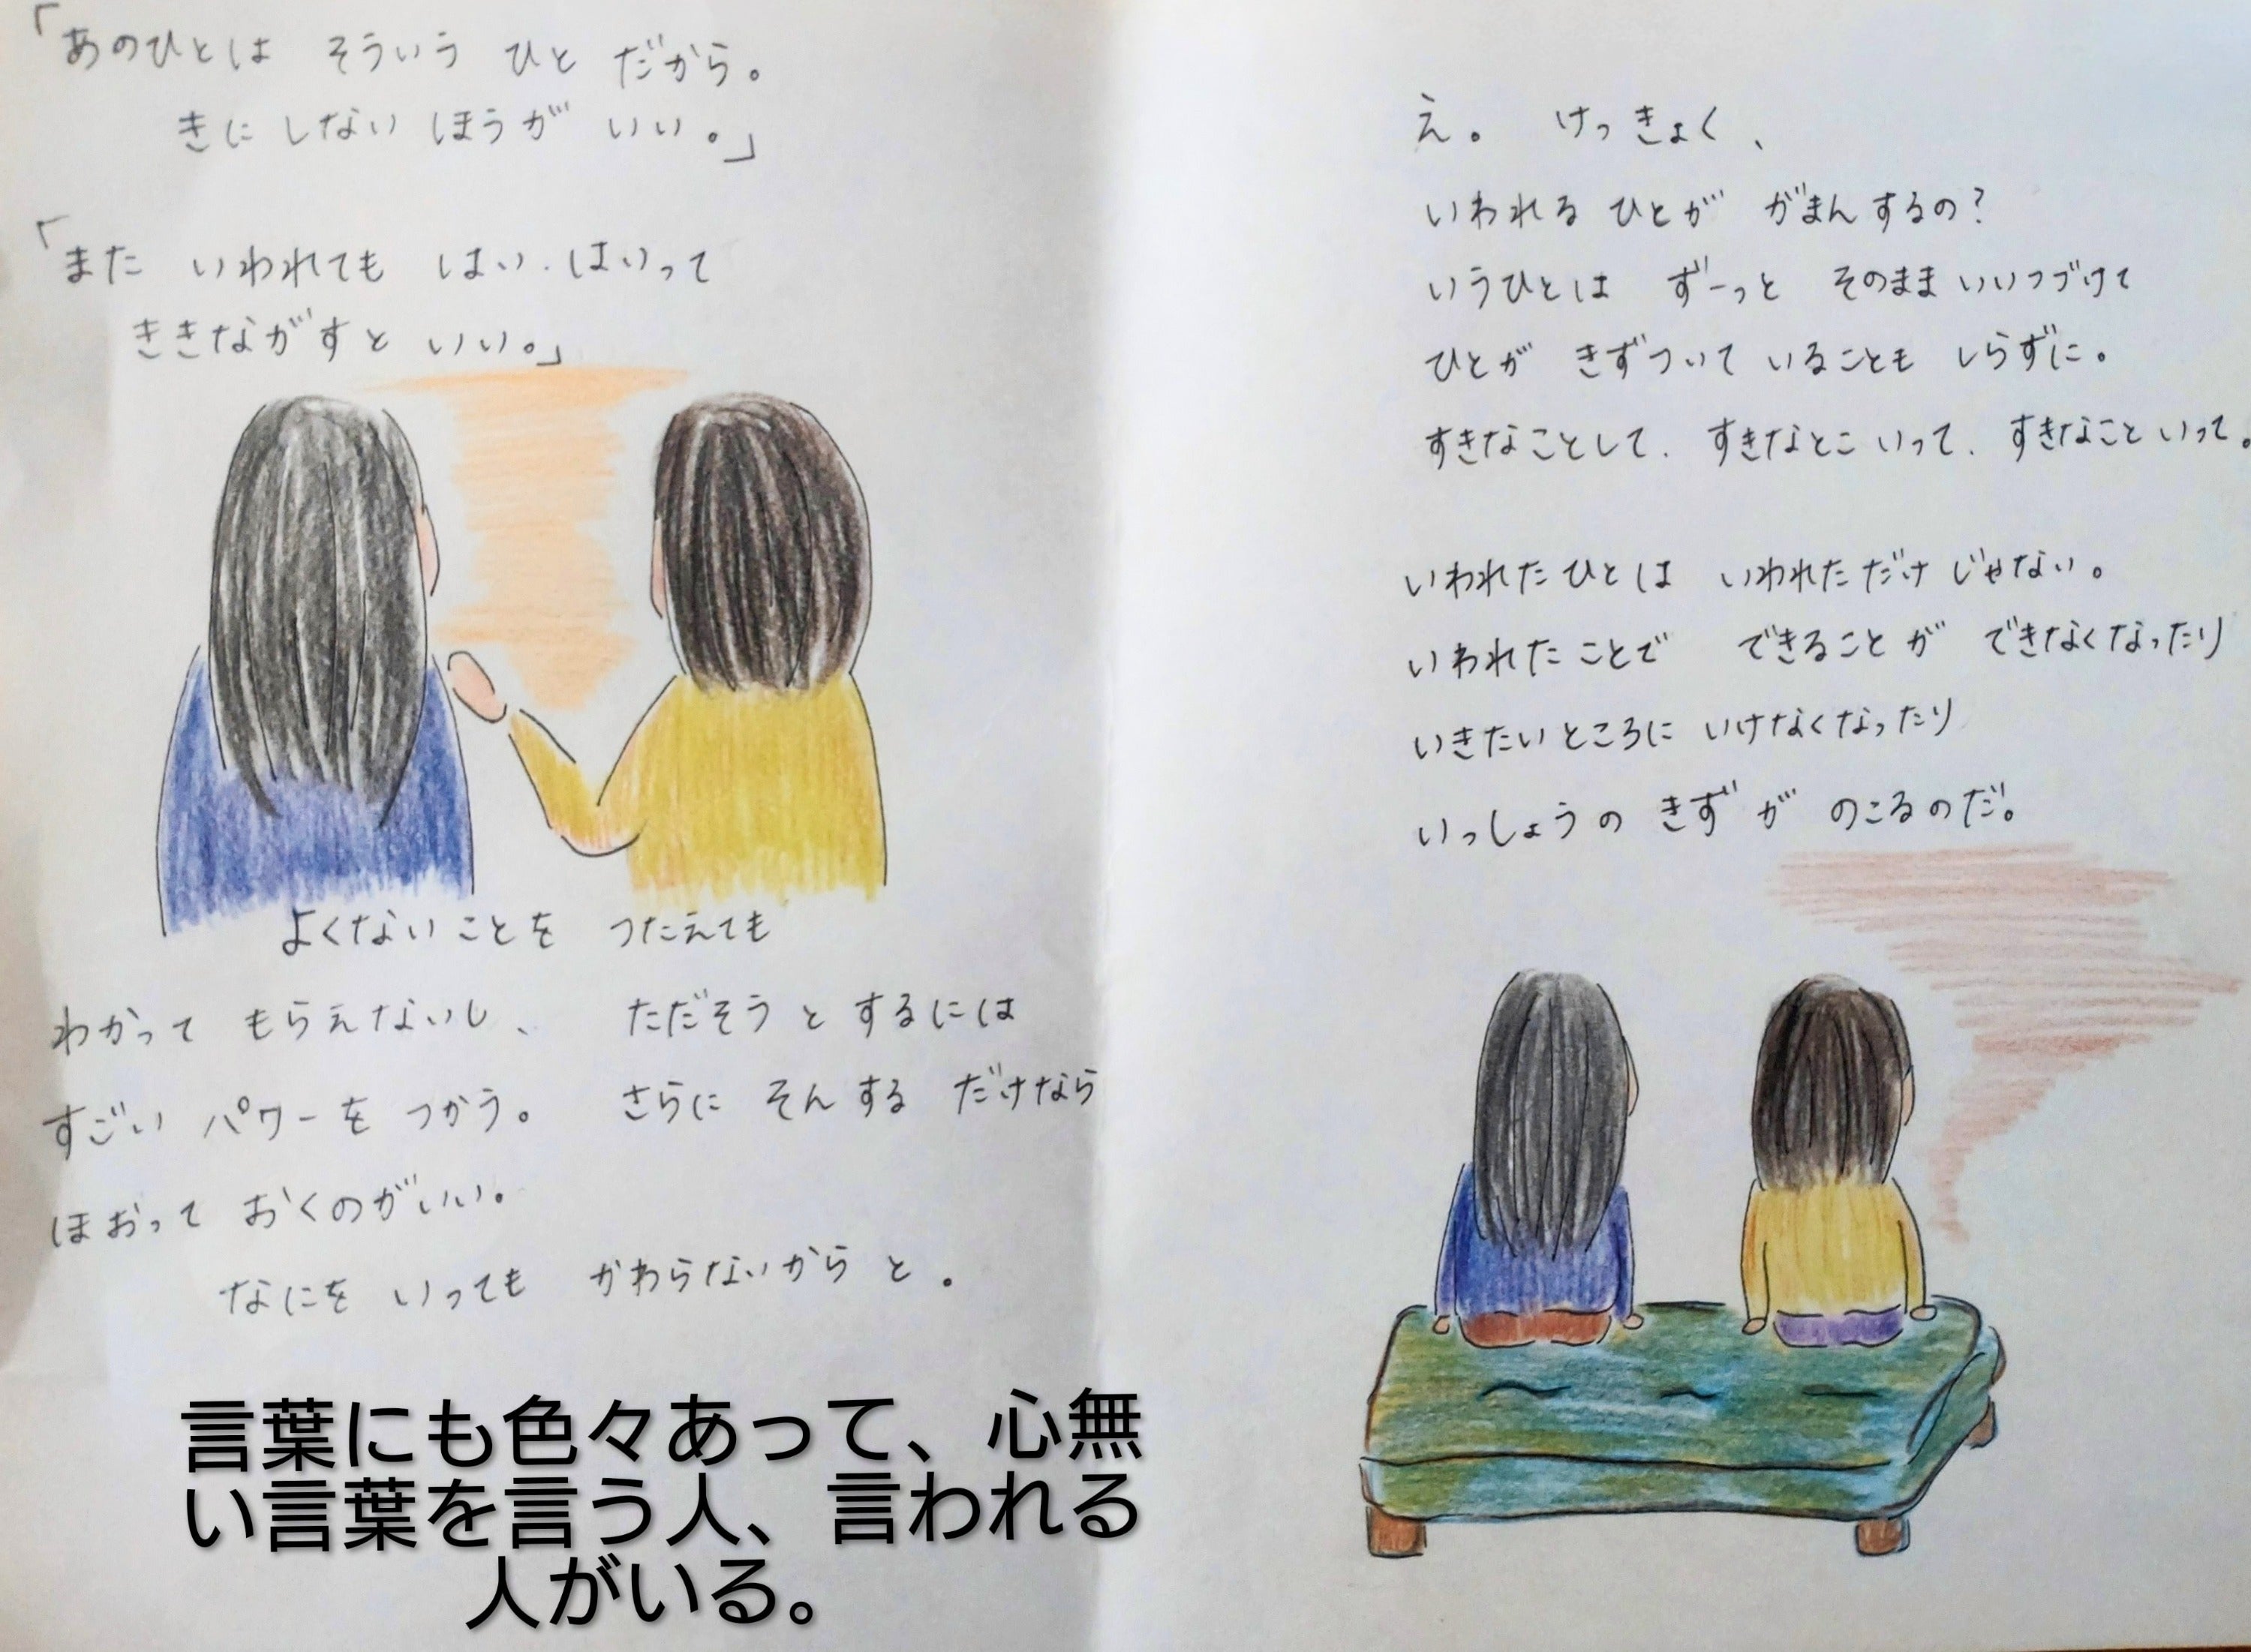 「あのひとは そういう ひと だから。
きに しない ほうが いい。」
「また いわれても はい.はいって
ききながすと いい。」
よくないことを つたえても
わかって もらえないし、 ただそう と するには
すごい パワーを つかう。 さらに そん する だけなら
ほおって おくのがいい。
なにを いっても かわらないから と。
言葉にも色々あって、心無
い言葉を言う人、言われる
人がいる。
え。 けっきょく、
いわれる ひとが がまんするの?
いうひとは ずーっと そのまま いいつづけて
ひとが きずついて いることも しらずに。
すきなことして. すきなとこ いって. すきなこと いって。
いわれた ひとは いわれた だけ じゃない。
いわれた ことで できること が できなくなったり
いきたい ところに いけなくなったり
いっしょうの きず が のこるのだ。